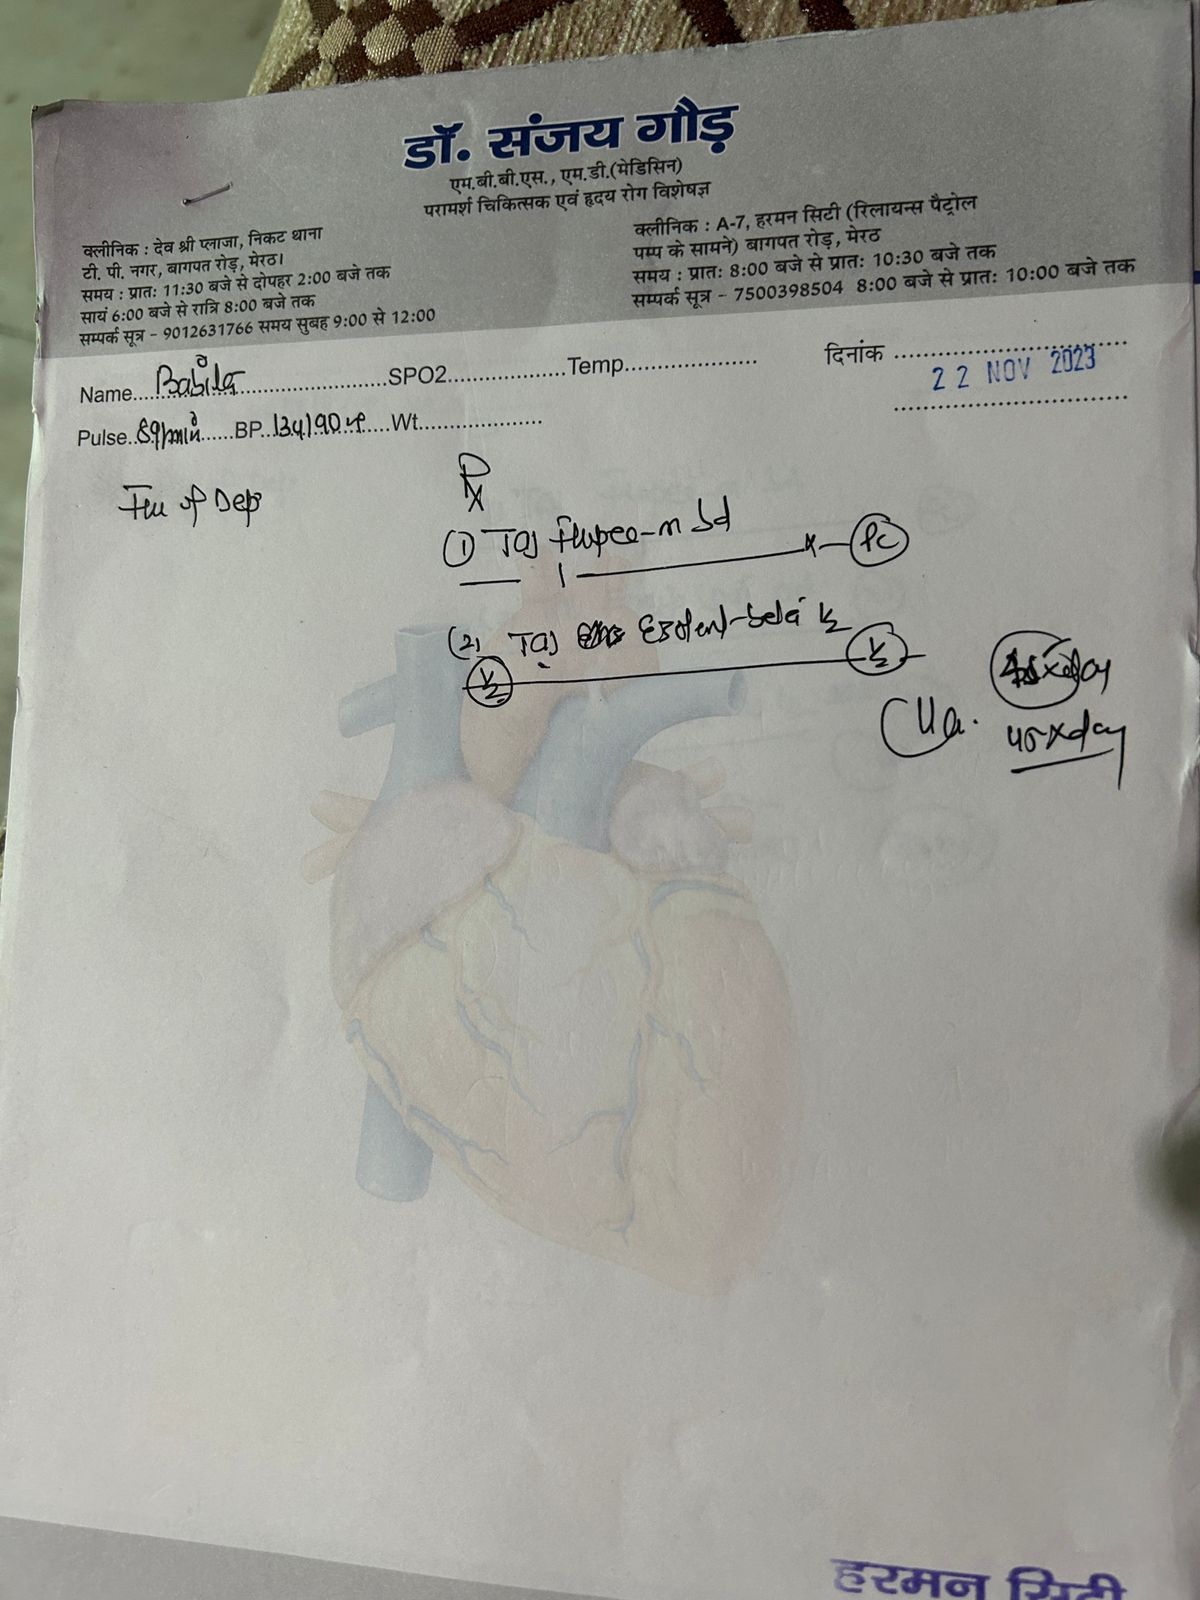 डॉ. संजय गौड़
एम.बी.बी.एस., एम.डी.(मेडिसिन)
परामर्श चिकित्सक एवं हृदय रोग विशेषज्ञ
क्लीनिक : देव श्री प्लाजा, निकट थाना
टी. पी. नगर, बागपत रोड़, मेरठ।
समय : प्रातः 11:30 बजे से दोपहर 2:00 बजे तक
सायं 6:00 बजे से रात्रि 8:00 बजे तक
सम्पर्क सूत्र - 9012631766 समय सुबह 9:00 से 12:00
क्लीनिक : A-7, हरमन सिटी (रिलायन्स पैट्रोल
पम्प के सामने) बागपत रोड़, मेरठ
समय : प्रातः 8:00 बजे से प्रातः 10:30 बजे तक
सम्पर्क सूत्र - 7500398504 8:00 बजे से प्रातः 10:00 बजे तक
Name.... Babita ....SPO2....Temp....
दिनांक .... 22 NOV 2023
Pulse.. 89/min ....BP.. 134/90 ....Wt....
of Dep
Rx
(1)
(2)
1/2 1/2
45xday
हरमन सिटी